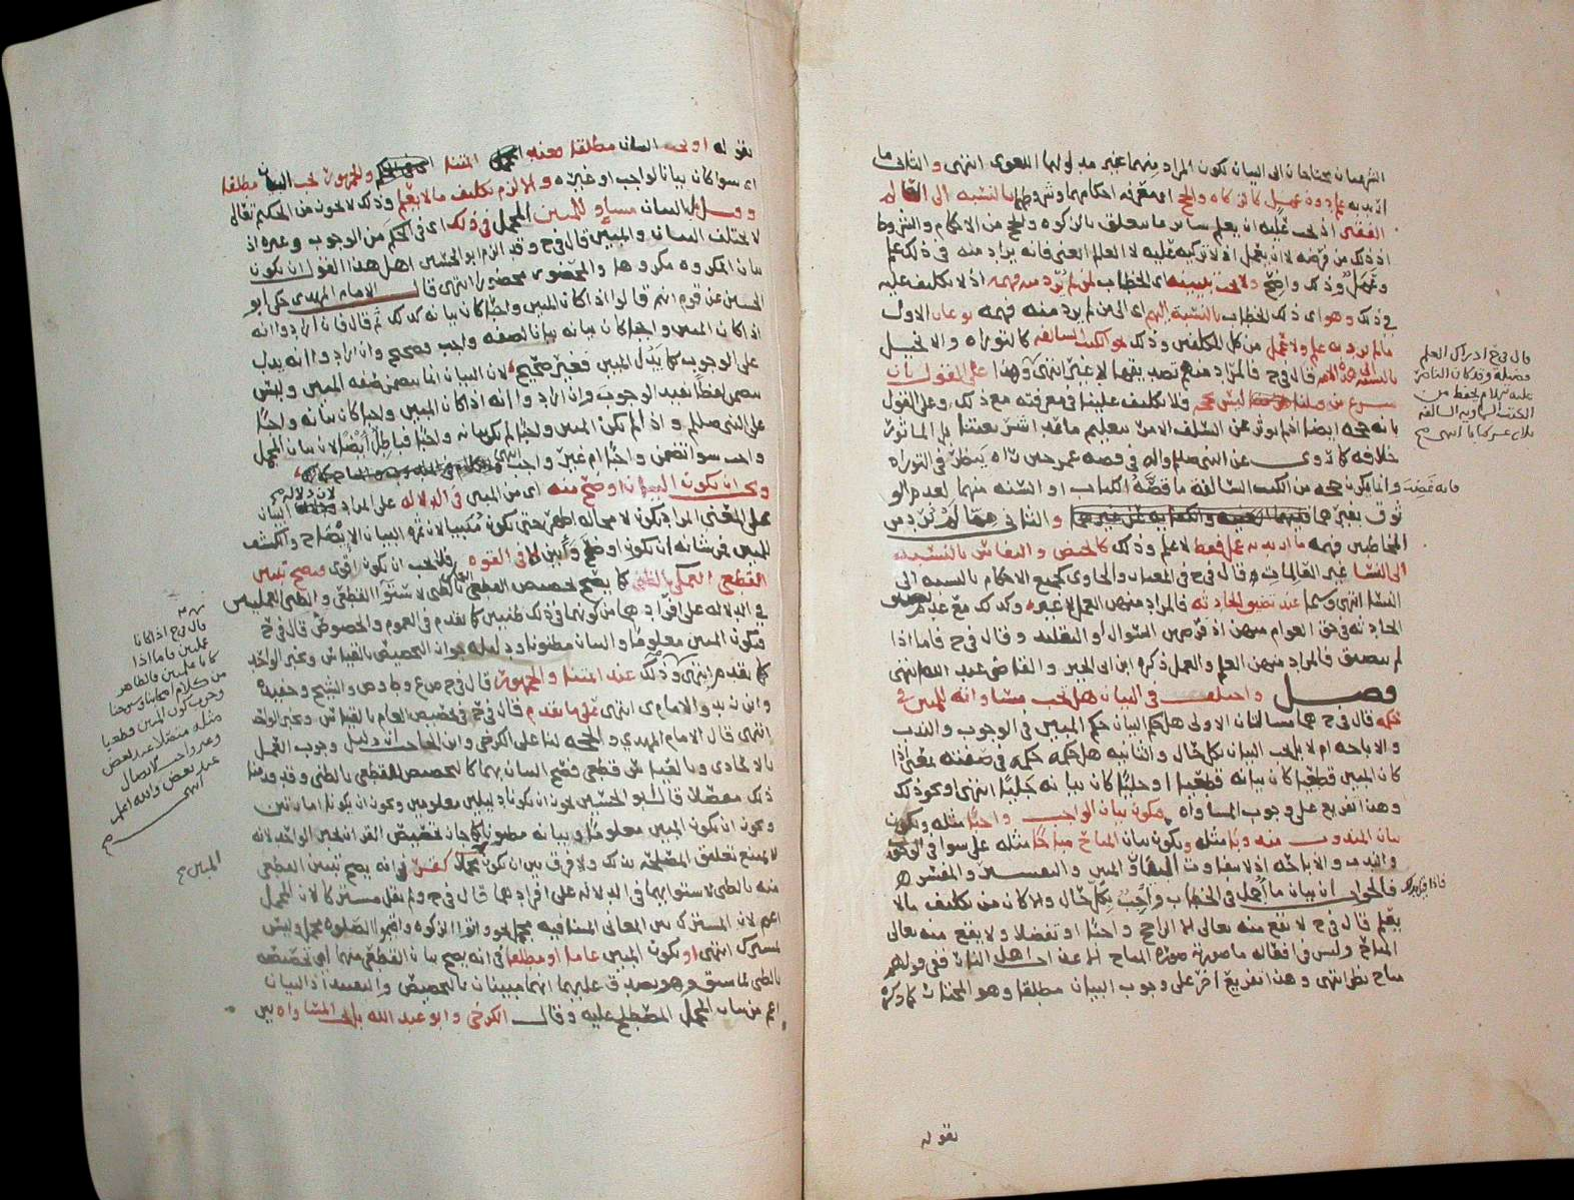 الشرعيان يحتاجان الى البيان بكون المراد منهما غير مدلولهما اللغوى انتهى والثانى ما
اريد به علم دون عمل كالزكاه والحج اى معرفه احكامهما وشروطهما بالنسبه الى العالم
الفقير اذ يجب عليه ان يعلم سائر ما يتعلق بالزكوه والحج من الاحكام والشروط
اذ ذلك من فرضه لا ان يعمل اذ لا زكوه عليه لا العالم الغنى فانه يراد منه فى ذلك علم
وعمل وذلك واضح ولا يجب تبيينه اى الخطاب لمن لم يرد منه فهمه اذ لا تكليف عليه
فى ذلك وهو اى ذلك الخطاب بالنسبة اليهم اى الى من لم يرد منه فهمه نوعان الاول
ما لم يرد به علم ولا عمل من كل المكلفين وذلك نحو الكتب السالفه كالتوراه والانجيل
بالنسبه الى هذه الامه قال فى ح فالمراد منهم تصديقها لا غير انتهى وهذا على القول بان
شرع من قبلنا ليس بحجه ولا تكليف علينا فى معرفته مع ذلك وعلى القول
بانه حجه ايضا اذ لم يوثر عن السلف الامر بتعليم ما قد اندرس بعضنا بل الماثور
خلافه كما روى عن النبى صلم واله فى قصه عمر حين راه ينظر فى التوراه
وانما يكون حجه من الكتب السالفة ما قصه الكتاب او السنه منهما لعدم الو
ثوق بغيرهما والثانى ممن لم يرد من
المخاطبين فهمه ما اريد به عمل فقط لا علم وذلك كالحيض والنفاس بالنسبه
الى النسا غير العالمات قال فى ح فى المعيار والحاوى كجميع الاحكام بالنسبه الى
النسا انتهى وسيما عند تضيق الحادثه فالمراد منهن العمل لا غيره وكذلك مع عدم تضيق
الحادثه فى حق العوام منهن اذ فرضهن السوال او التقليد وقال فى ح فاما اذا
لم تتضيق فالمراد منهن العلم والعمل ذكره ابن ابى الخير والقاضى عبد الله انتهى
فصل واختلف فى البيان هل يجب مساواته للمبين فى
حكمه قال فى ح هما مسالتان الاولى هل حكم البيان حكم المبين فى الوجوب والندب
والاباحه ام لا بل يجب البيان بكل حال والثانيه هل حكمه حكمه فى صفته بمعنى اذا
كان المبين قطعيا كان بيانه قطعيا او جليا كان بيانه جليا انتهى او نحو ذلك
وهذا تفريع على وجوب المساواه فيكون بيان الواجب واجبا مثله ويكون
بيان المندوب مندوبا مثله ويكون بيان المباح مباحا مثله على سوا فى الوجوب
والندب والاباحه اذ لا تفاوت
فالحق ان بيان ما اجمل فى الخطاب واجب بكل حال والا كان من تكليف مالا
يعلم قال فى ح لا يقع منه تعالى الا الراجح واجبا او تفضلا ولا يقع منه تعالى
المباح وليس فى افعاله ما صورته صورة المباح
مباح نظر انتهى وهذا تفريع اخر على وجوب البيان مطلقا وهو المختار كما ذكره
بقوله
قال فى ح ادراك العلم
فضيلة وقد كان الناصر
عليه السلام يحفظ من
الكتب السماويه السالفه
ثلاثه عشر كتابا انتهى ح
بقوله او يجب البيان مطلقا عند ائمتنا والجمهور يجب البيان مطلقا
اى سوا كان بيانا لواجب او غيره والا لزم تكليف ما لا يعلم وذلك لا يجوز من الحكيم تعالى
وقيل بل البيان مساو للمبين المجمل فى ذلك اى فى الحكم من الوجوب وغيره اذ
لا يختلف البيان والمبين قال فى ح وقد الزم ابو الحسين اهل هذا القول ان يكون
بيان المكروه مكروها والمحضور محضورا انتهى قال الامام المهدى حكى ابو
الحسين عن قوم انهم قالوا اذا كان المبين واجبا كان بيانه كذلك ثم قال فان ارادوا انه
اذا كان المبين واجبا كان بيانه بيانا لصفه واجب فصحيح وان ارادوا انه يدل
على الوجوب كما يدل المبين فغير صحيح لان البيان انما يتضمن صفه المبين وليس
يتضمن لفظا يفيد الوجوب وان ارادوا انه اذا كان المبين واجبا كان بيانه واجبا
على النبى صلم واذا لم يكن المبين واجبا لم يكن بيانه واجبا فباطل ايضا لان بيان المجمل
واجب سوا تضمن واجبا ام غير واجب انتهى
ويجب ان يكون البيان اوضح منه اى من المبين فى الدلاله على المراد
على المعنى المراد يكون لا محاله اظهر حتى يكون مبينا لان ثمره البيان الايضاح والكشف
للمبين فمن شانه ان يكون اوضح وابين لا فى القوه فلا يجب ان يكون اقوى فيصح تبيين
القطعى العملى بالظنى كما يصح تخصيص القطعى بالظنى لاستوا القطعى والظنى العمليين
فى الدلاله على افرادهما من كونهما فى ذلك ظنيين كما تقدم فى العموم والخصوص قال فى ح
فيكون المبين معلوما والبيان مظنونا ودليله جواز التخصيص بالقياس وخبر الواحد
كما تقدم انتهى وذلك عند ائمتنا والجمهور قال فى ح
انتهى قال فى ح فى تخصيص العام بالقياس وخبر الواحد
انتهى قال الامام المهدى والحجه لنا على الكرخى وابن الحاجب ان دليل وجوب العمل
بالاحادى وبالقياس قطعى فصح البيان بهما كالتخصيص للقطعى بالظنى وقد قدمنا
ذلك مفصلا قال ابو الحسين يجوز ان يكونا دليلين معلومين ويجوز ان يكونا امارتين
ويجوز ان يكون المبين معلوما وبيانه مظنونا كما جاز تخصيص القران بخبر الواحد لانه
لا يمتنع تعليق المصلحه بذلك ولا فرق بين ان يكون مجملا فى انه يصح تبيين القطعى
منه بالظنى لاستوايهما فى الدلاله على افرادهما قال فى ح ولم يقل مشتركا لان المجمل
اعم لان المشترك بين المعانى المتنافيه مجمل نحو واتوا الزكوه واقيموا الصلوه مجمل وليس
بمشترك انتهى او يكون المبين عاما او مطلقا فى انه يصح بيان القطعى منهما اى تخصيصه
بالظنى لما سبق وهو يصدق عليهما انهما مبينان بالتخصيص والتقييد اذ البيان
اعم من بيان المجمل المصطلح عليه وقال الكرخى وابو عبد الله بل يجب المساواه بين
قال فى ح اذا كانا
عمليين فاما اذا
كانا علميين فالظاهر
من كلام اصحابنا وشيوخنا
وجوب كون المبين قطعيا
مثله متصلا عند البعض
وغير واجب الاتصال
عند بعض والله اعلم
انتهى
المبين ح